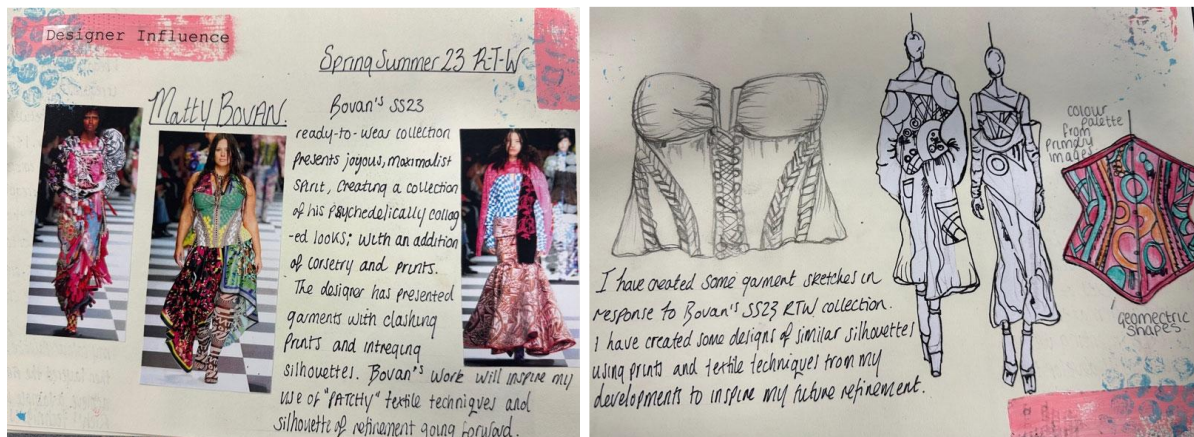 Designer Influence
Spring Summer 23 R-T-W
Matty Bovan.
Bovan's SS23
ready-to-wear collection
presents joyous, maximalist
spirit, creating a collection
of his psychedelically collag
-ed looks; with an addition
of corsetry and prints.
The designer has presented
garments with clashing
prints and intreging
silhouettes. Bovan's work will inspire my
use of "PATCHY" textile techniques and
silhouette of refinement going forward.
colour
palette
from
primary
images
geometric
shapes.
I have created some garment sketches in
response to Bovan's SS23 RTW collection.
I have created some designs of similar silhouettes
using prints and textile techniques from my
developments to inspire my future refinement.